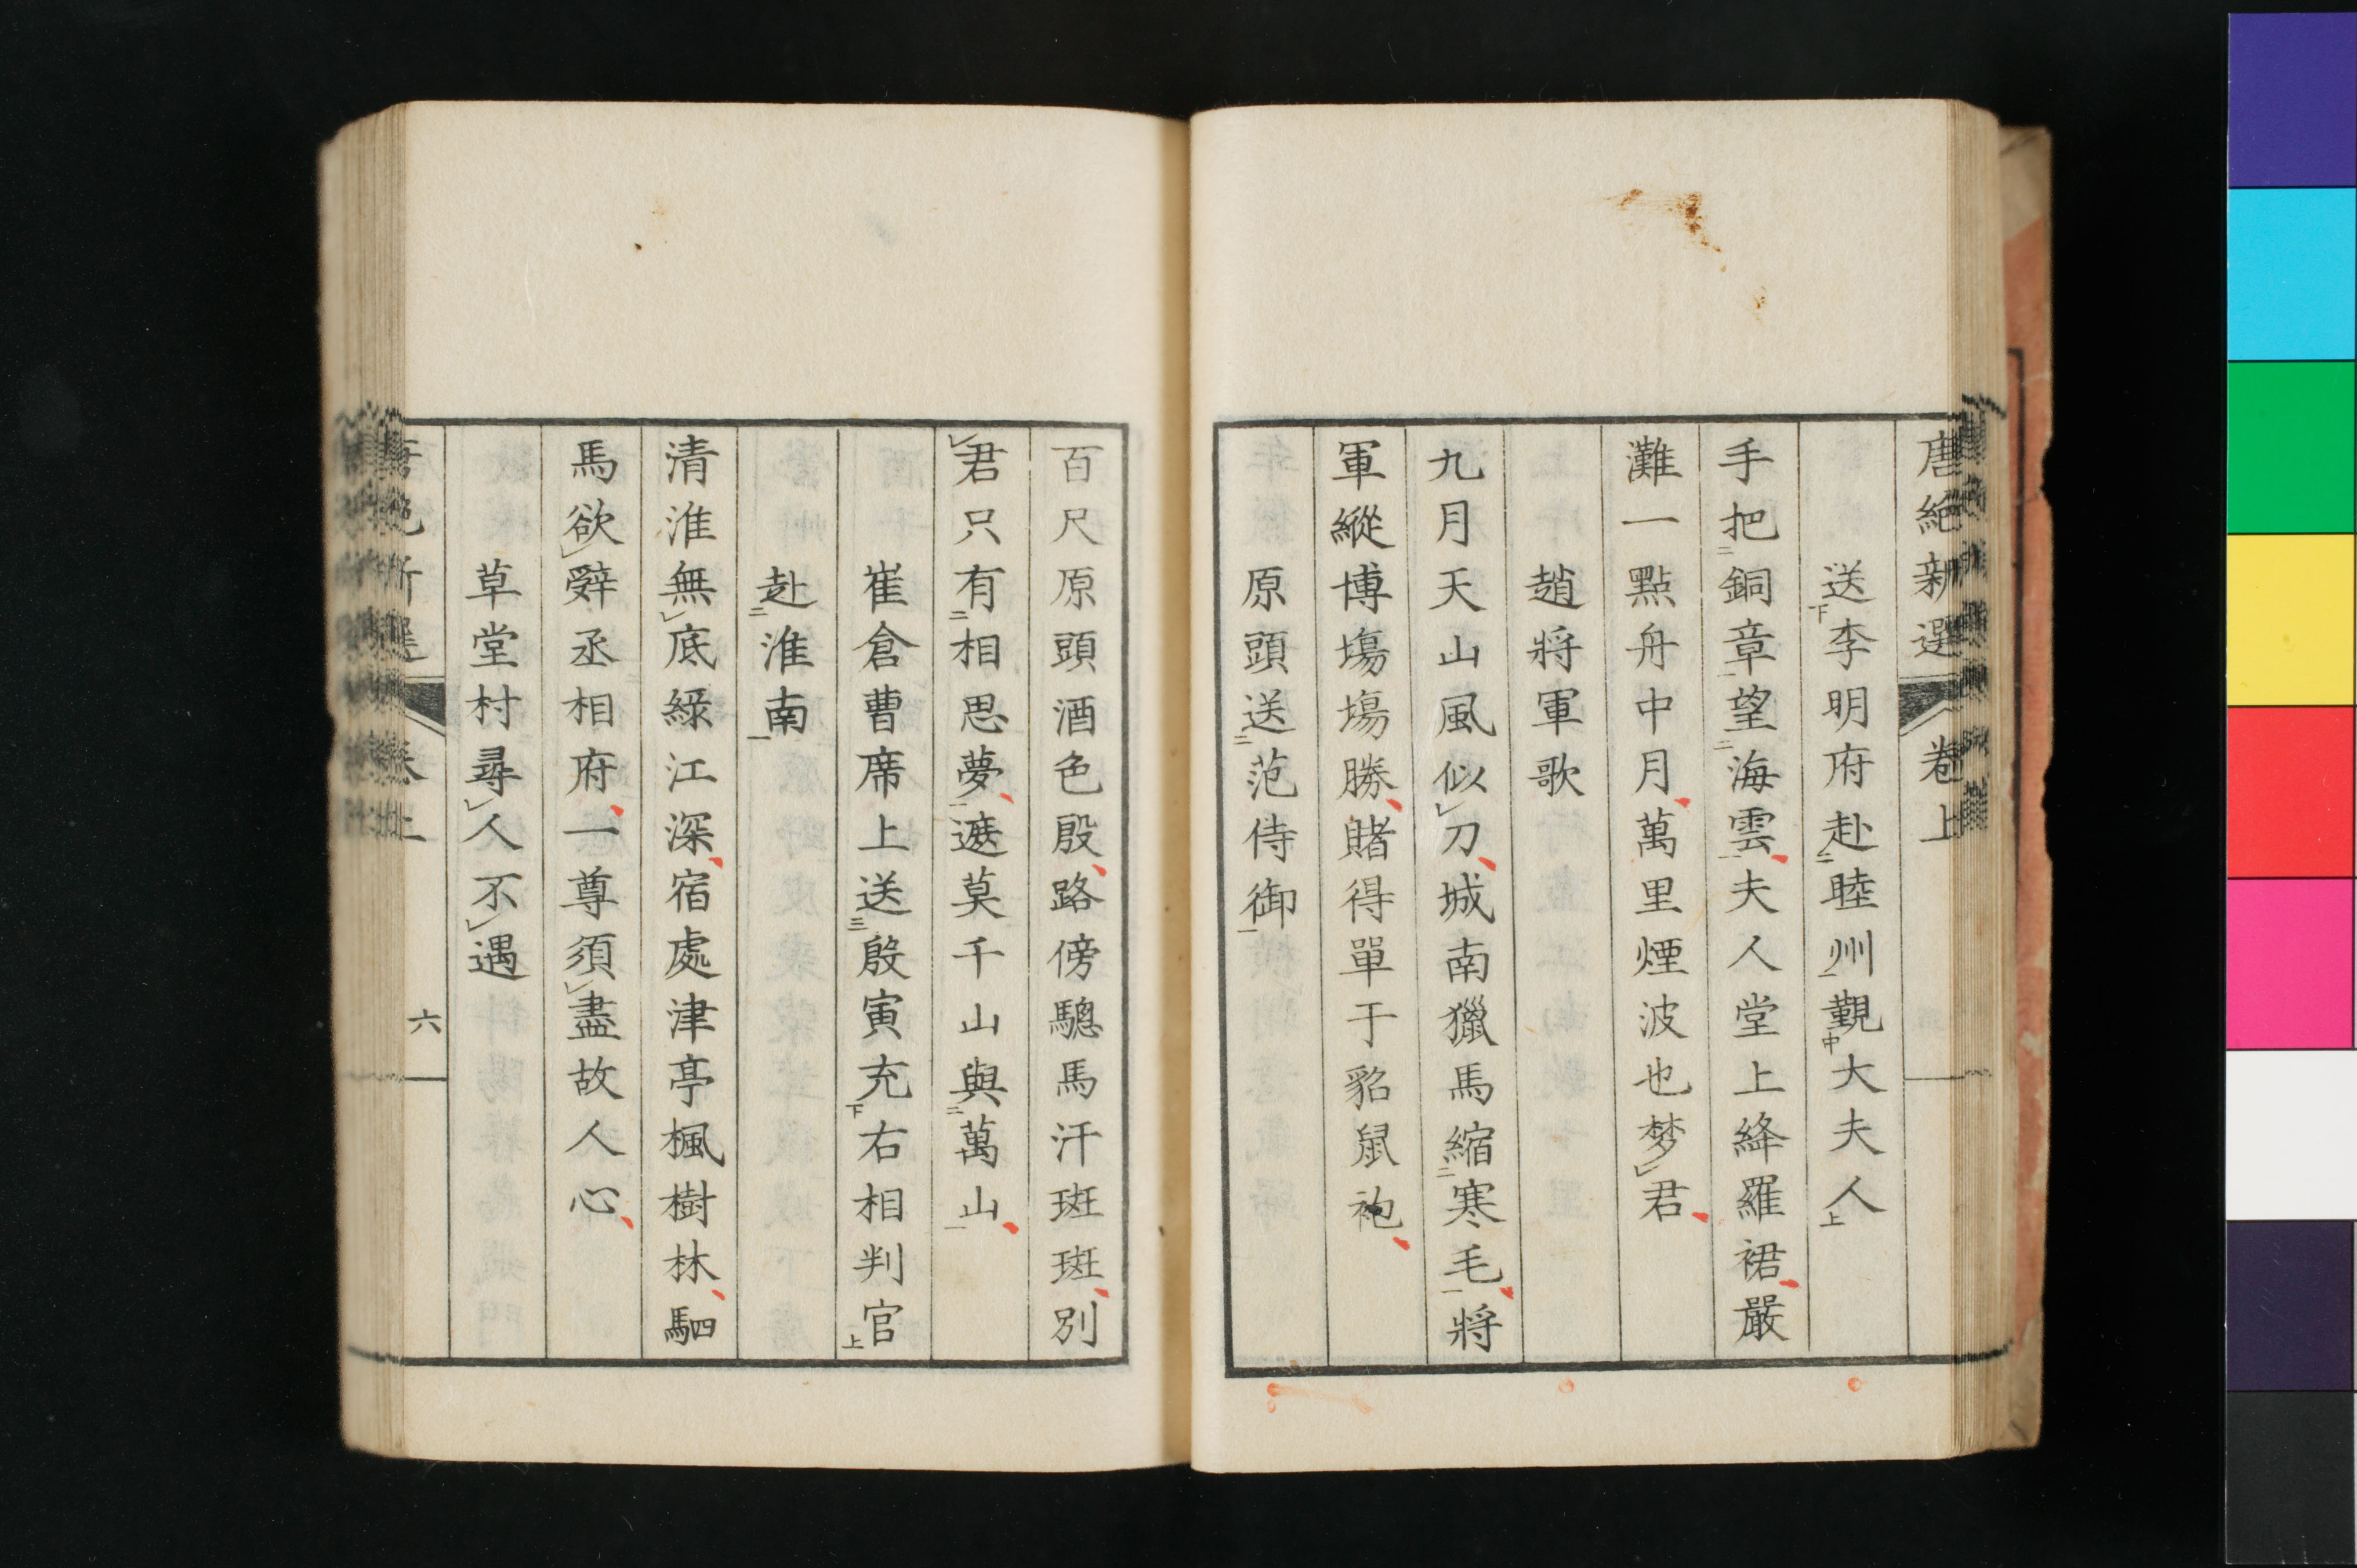 唐絶新選 卷上
送李明府赴睦州觀大夫人
手把銅章望海雲夫人堂上絳羅裙嚴
灘一點舟中月萬里煙波也梦君
趙將軍歌
九月天山風似刀城南獵馬縮寒毛將
軍縱博塲塲勝賭得單于貂鼠袍
原頭送范侍御
百尺原頭酒色殷路傍驄馬汗斑斑別
君只有相思夢遮莫千山與萬山
崔倉曹席上送殷寅充右相判官
赴淮南
清淮無底綠江深宿處津亭楓樹林駟
馬欲辤丞相府一尊須盡故人心
草堂村尋人不遇
唐絶新選 卷上 六